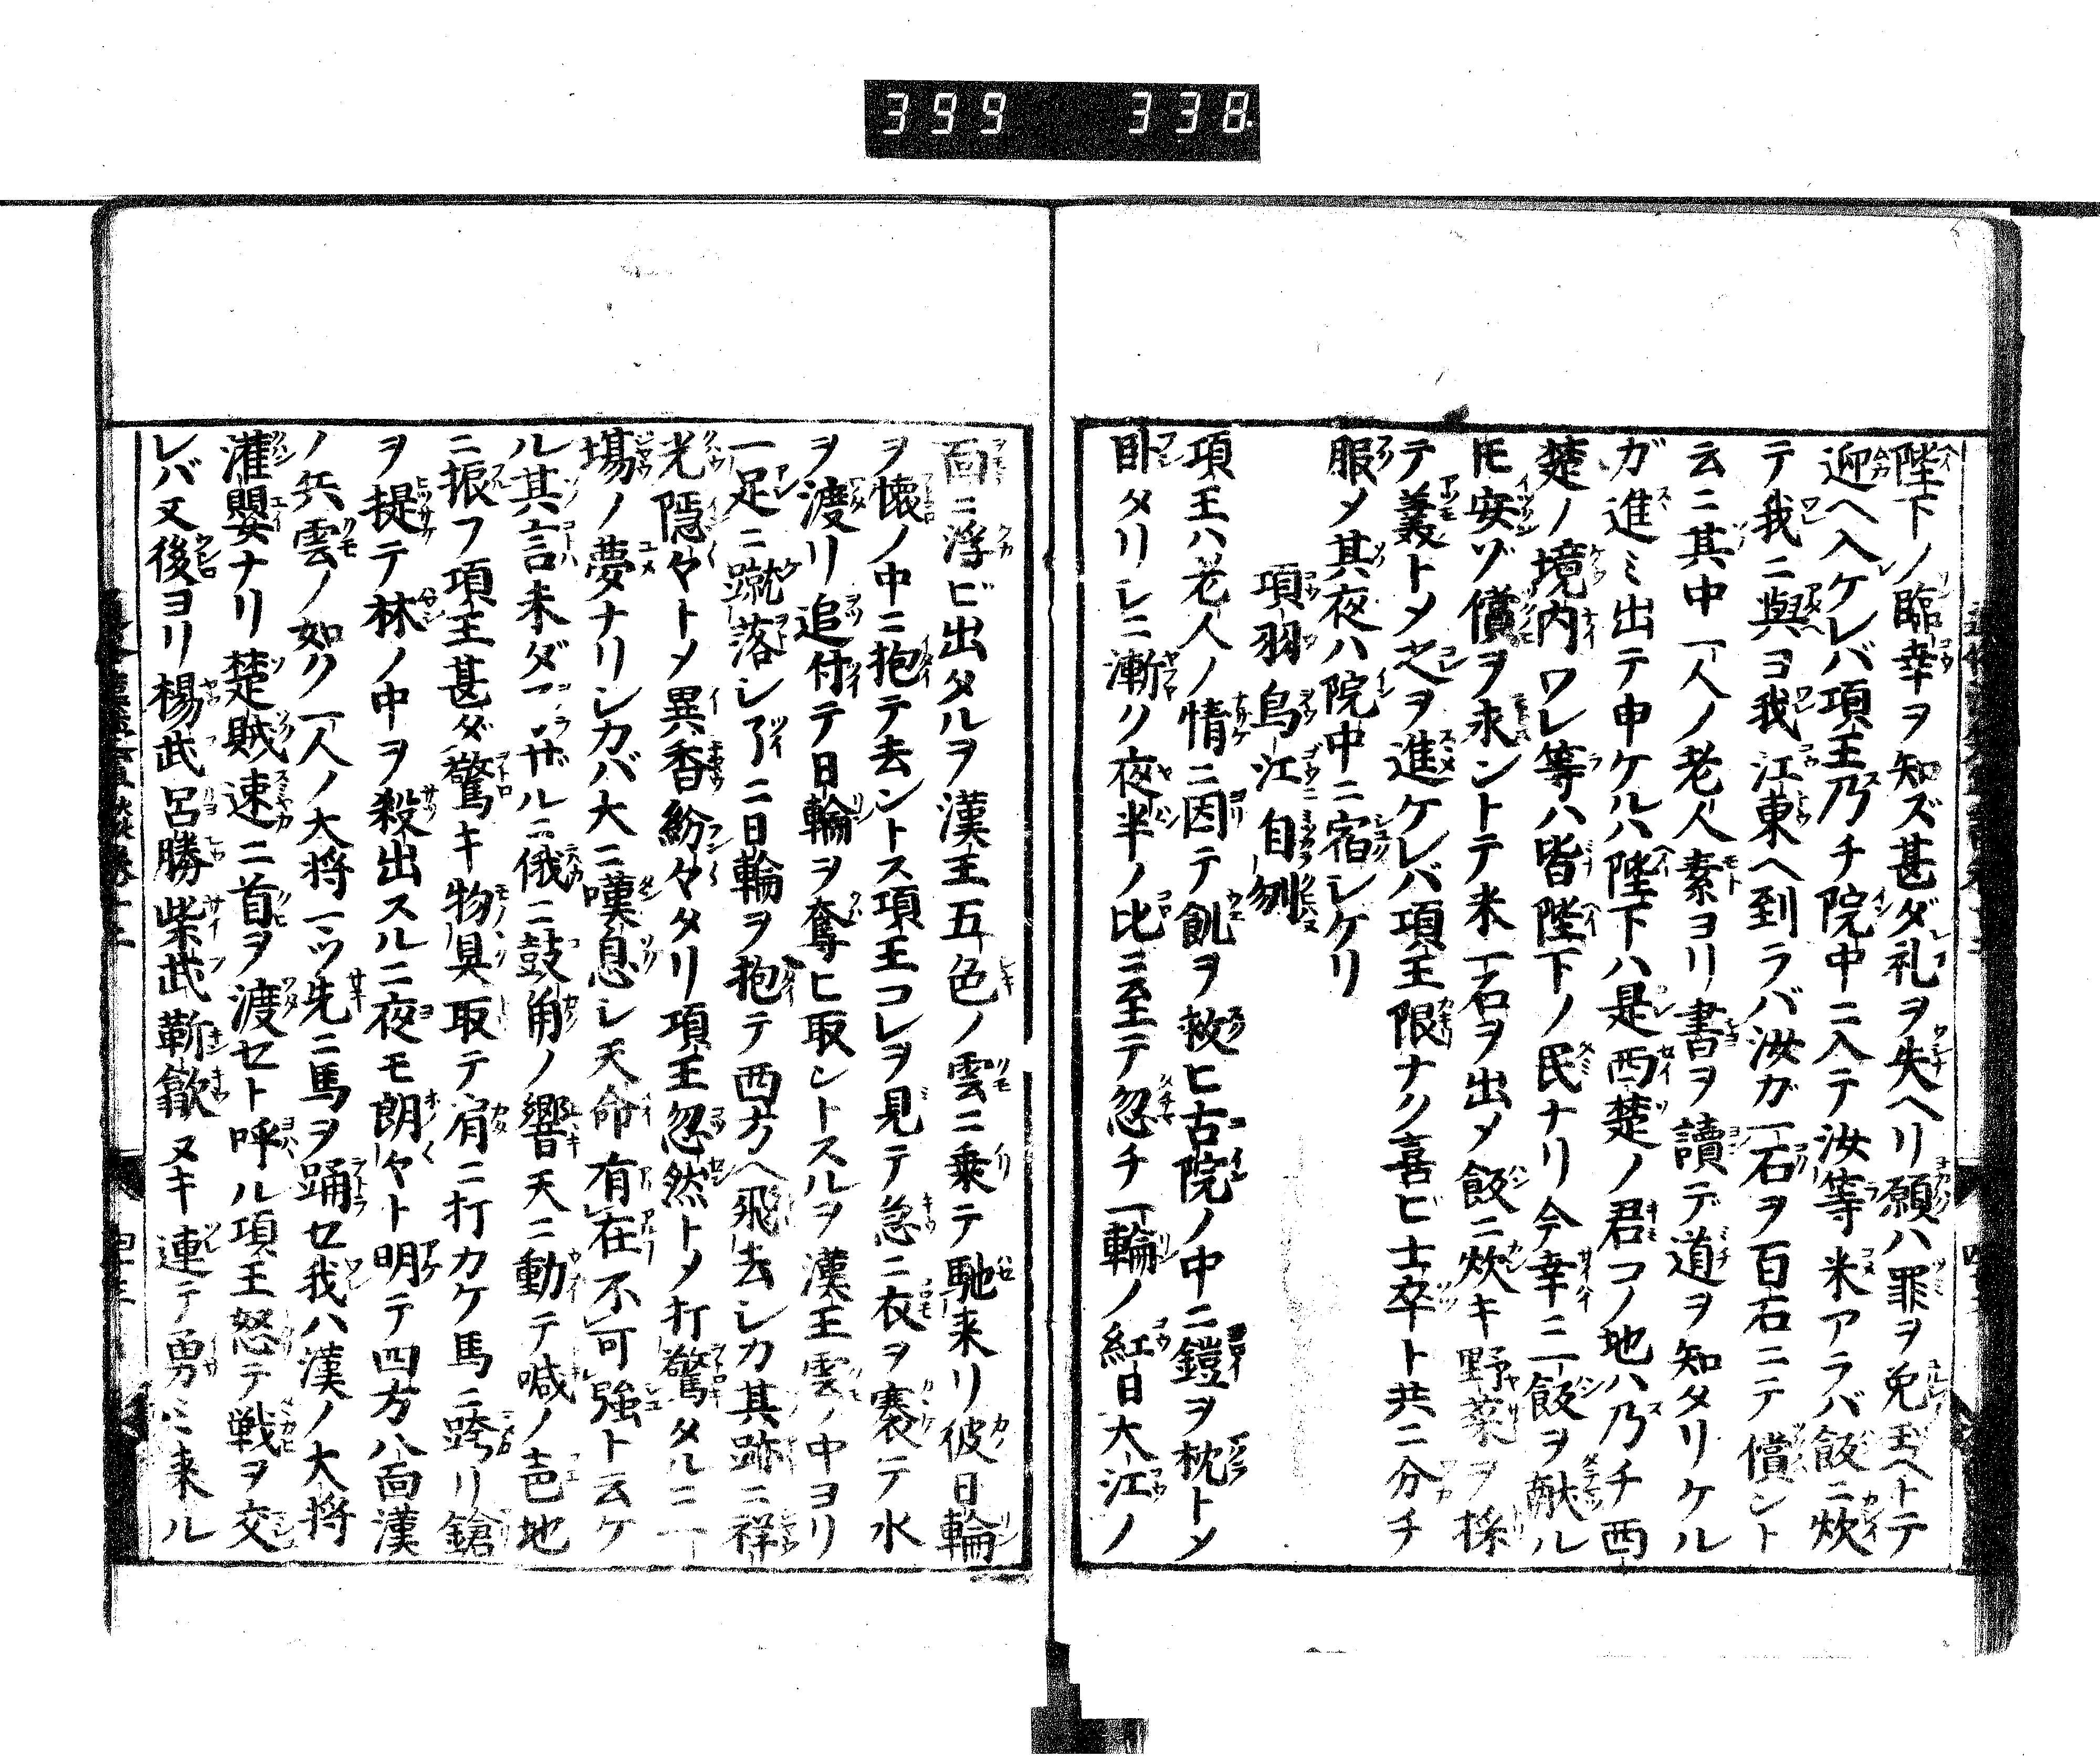 399 338.
陛下ノ臨幸ヲ知ズ甚ダ礼ヲ失ヘリ願ハ罪ヲ免玉ヘトテ
迎ヘ入ケレバ項王乃チ院中ニ入テ汝等米アラバ飯ニ炊
テ我ニ與ヨ我江東ヘ到ラバ汝ガ一石ヲ百石ニテ償ント
云ニ其中一人ノ老人素ヨリ書ヲ讀デ道ヲ知タリケル
ガ進ミ出テ申ケルハ陛下ハ是西楚ノ君コノ地ハ乃チ西
楚ノ境内ワレ等ハ皆陛下ノ民ナリ今幸ニ一飯ヲ献ル
𪜈安ゾ償ヲ求ントテ米一石ヲ出メ飯ニ炊キ野菜ヲ採
テ羹トメ之ヲ進ケレバ項王限ナク喜ビ士卒ト共ニ分チ
服メ其夜ハ院中ニ宿レケリ
項羽烏江自刎
項王ハ老人ノ情ニ因テ飢ヲ救ヒ古院ノ中ニ鎧ヲ枕トメ
臥タリレニ漸ク夜半ノ比ニ至テ忽チ一輪ノ紅日大江ノ
面ニ浮ビ出タルヲ漢王五色ノ雲ニ乗テ馳来リ彼日輪
ヲ懐ノ中ニ抱テ去ントス項王コレヲ見テ急ニ衣ヲ褰テ水
ヲ渡リ追付テ日輪ヲ奪ヒ取ントスルヲ漢王雲ノ中ヨリ
一足ニ蹴落レ了ニ日輪ヲ抱テ西方ヘ飛去レカ其跡ニ祥
光隠々トメ異香紛々タリ項王忽然トメ打驚タルニ一
場ノ夢ナリレカバ大ニ嘆息レ天命有在不可強ト云ケ
ル其言未ダ了ザルニ俄ニ鼓角ノ響天ニ動テ喊ノ声地
ニ振フ項王甚ダ驚キ物具取テ肩ニ打カケ馬ニ跨リ鎗
ヲ提テ林ノ中ヲ殺出スルニ夜モ朗々ト明テ四方八面漢
ノ兵雲ノ如ク一人ノ大将一ツ先ニ馬ヲ踊セ我ハ漢ノ大将
灌嬰ナリ楚賊速ニ首ヲ渡セト呼ル項王怒テ戦ヲ交
レバ又後ヨリ楊武呂勝柴武靳歙ヌキ連テ勇ミ来ル